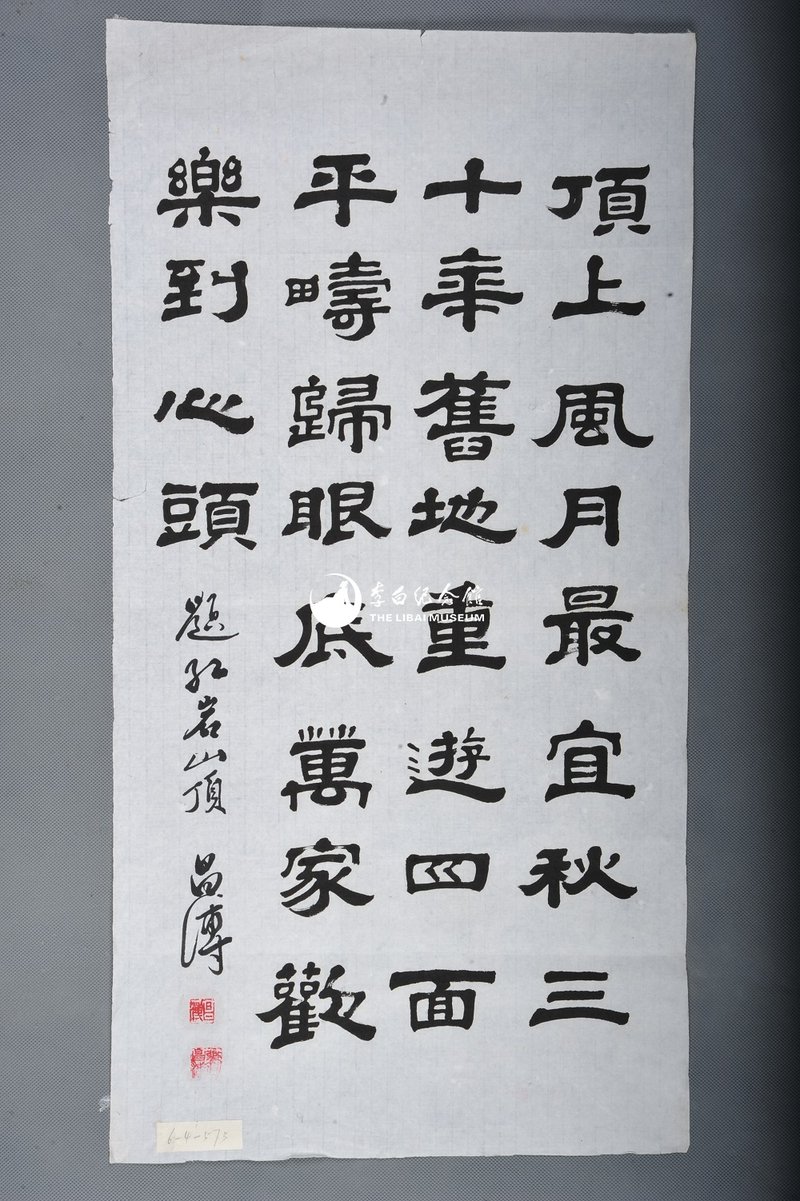 頂上風月最宜秋三
十年舊地重遊四面
平疇歸眼底萬家歡
樂到心頭
題紅岩山頂
昌溥
李白纪念馆
THE LIBAI MUSEUM
6-4-573